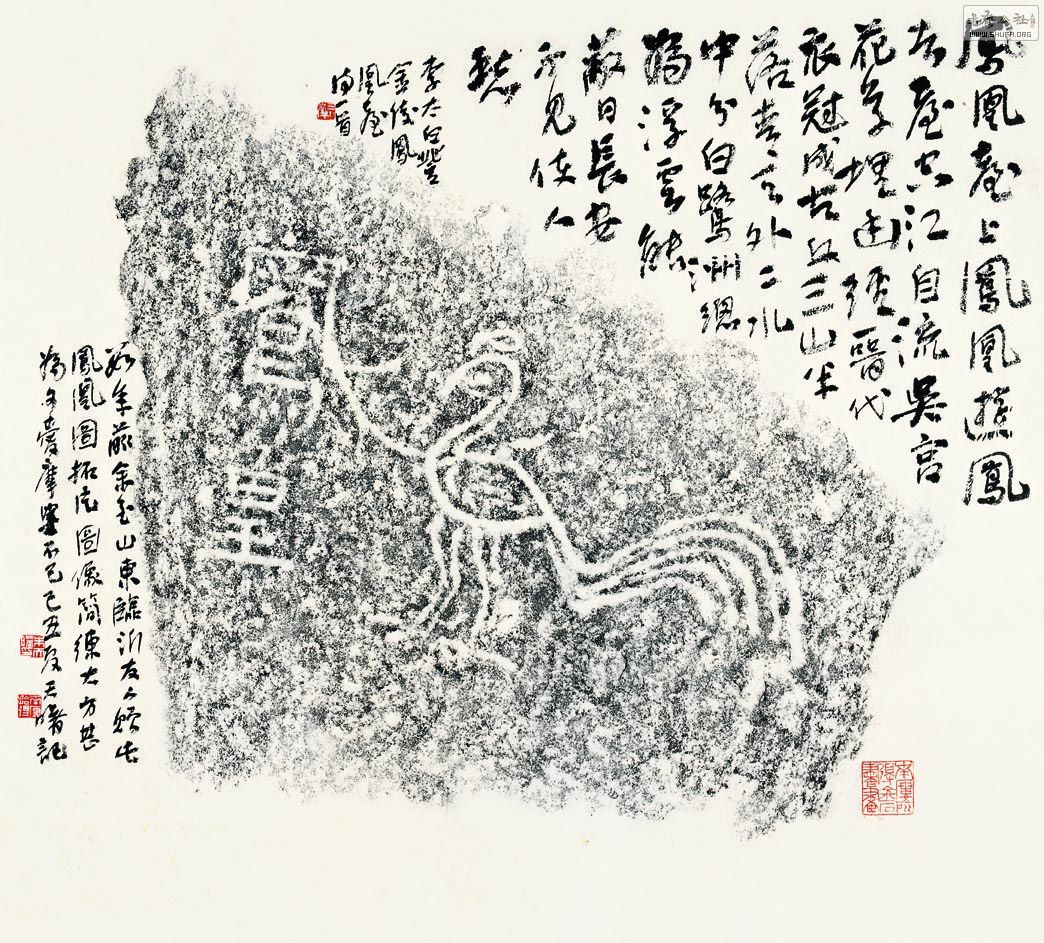 鳳凰臺上鳳凰遊鳳
去臺空江自流吳宮
花草埋幽徑晉代
衣冠成古丘三山半
落青天外二水
中分白鷺洲總
為浮雲能
蔽日長安
不見使人
愁
李太白登
金陵鳳
凰臺
詩一首
皇
數年前余至山東臨沂友人贈此
鳳凰圖拓片圖像簡練大方甚
為予愛摩挲不已己丑夏君曙記
WWW.SHUFA.ORG